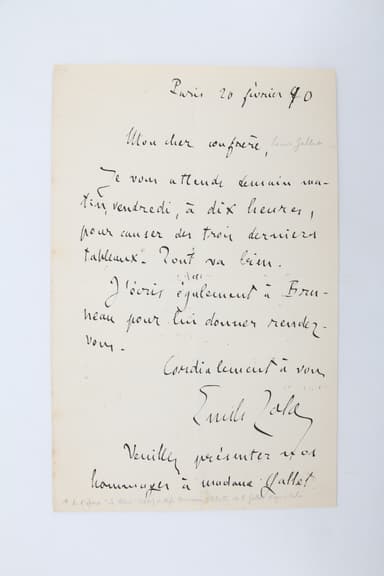 Paris 20 février 90
Mon cher confrère, Louis Gallet
Je vous attends demain ma-
tin, vendredi, à dix heures,
pour causer des trois derniers
tableaux. Tout va bien.
J'écris également à Bru-
neau pour lui donner rendez-
vous.
Cordialement à vous
Emile Zola
Veuillez présenter mes
hommages à madame Gallet